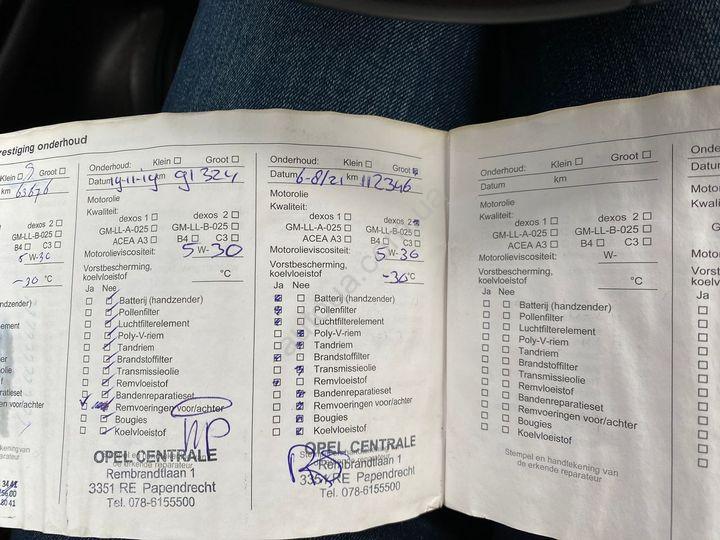 restiging onderhoud
Klein ☐ Groot ☐
km 63676
5 W-30
-30 °C
(handzender)
element
er
solie
of
ratieset
en voor/achter
toestel
Onderhoud: Klein ☐ Groot ☐
Datum 14-11-19 km 91324
Motorolie
Kwaliteit: dexos 1 ☐ dexos 2 ☐
GM-LL-A-025 ☐ GM-LL-B-025 ☐
ACEA A3 ☐ B4 ☐ C3 ☐
Motorolieviscositeit: 5 W-30
Vorstbescherming,
koelvloeistof °C
Ja Nee
Batterij (handzender)
Pollenfilter
Luchtfilterelement
Poly-V-riem
Tandriem
Brandstoffilter
Transmissieolie
Remvloeistof
Bandenreparatieset
Remvoeringen voor/achter
Bougies
Koelvloeistof
OPEL CENTRALE
Rembrandtlaan 1
3351 RE Papendrecht
Tel. 078-6155500
Onderhoud: Klein ☐ Groot ☒
Datum 6-8/21 km 112346
Motorolie
Kwaliteit:
dexos 1 ☐ dexos 2 ☒
GM-LL-A-025 ☐ GM-LL-B-025 ☐
ACEA A3 ☐ B4 ☐ C3 ☐
Motorolieviscositeit: 5 W-30
Vorstbescherming,
koelvloeistof -30 °C
Ja Nee
Batterij (handzender)
Pollenfilter
Luchtfilterelement
Poly-V-riem
Tandriem
Brandstoffilter
Transmissieolie
Remvloeistof
Bandenreparatieset
Remvoeringen voor/achter
Bougies
Koelvloeistof
OPEL CENTRALE
Rembrandtlaan 1
3351 RE Papendrecht
Tel. 078-6155500
Onderhoud: Klein ☐ Groot ☐
Datum km
Motorolie
Kwaliteit:
dexos 1 ☐ dexos 2 ☐
GM-LL-A-025 ☐ GM-LL-B-025 ☐
ACEA A3 ☐ B4 ☐ C3 ☐
Motorolieviscositeit: W-
Vorstbescherming,
koelvloeistof °C
Ja Nee
Batterij (handzender)
Pollenfilter
Luchtfilterelement
Poly-V-riem
Tandriem
Brandstoffilter
Transmissieolie
Remvloeistof
Bandenreparatieset
Remvoeringen voor/achter
Bougies
Koelvloeistof
Stempel en handtekening van
de erkende reparateur
Datum
Motorolie
Kwaliteit
Ja